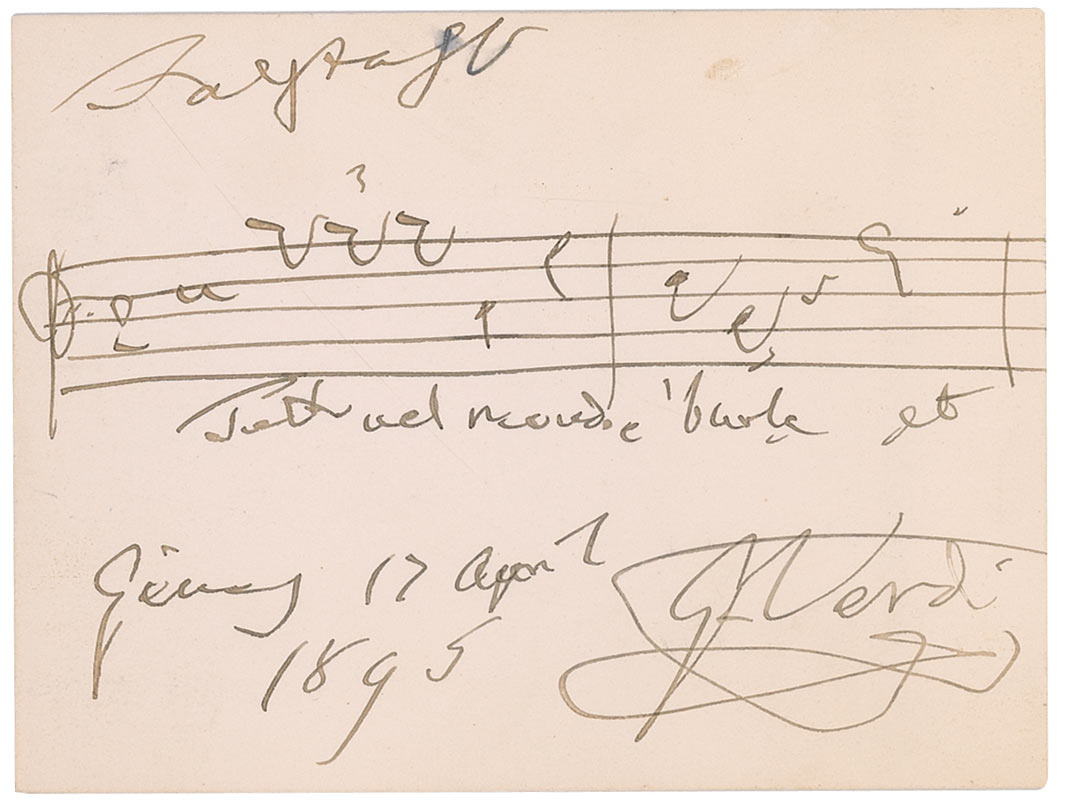 Falstaff
3
Tutto nel mondo è burla etc
Genova 17 April
1895
G. Verdi